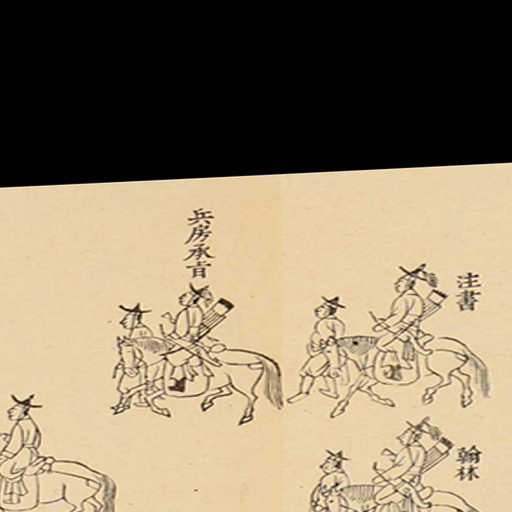 注書
翰林
兵房承旨